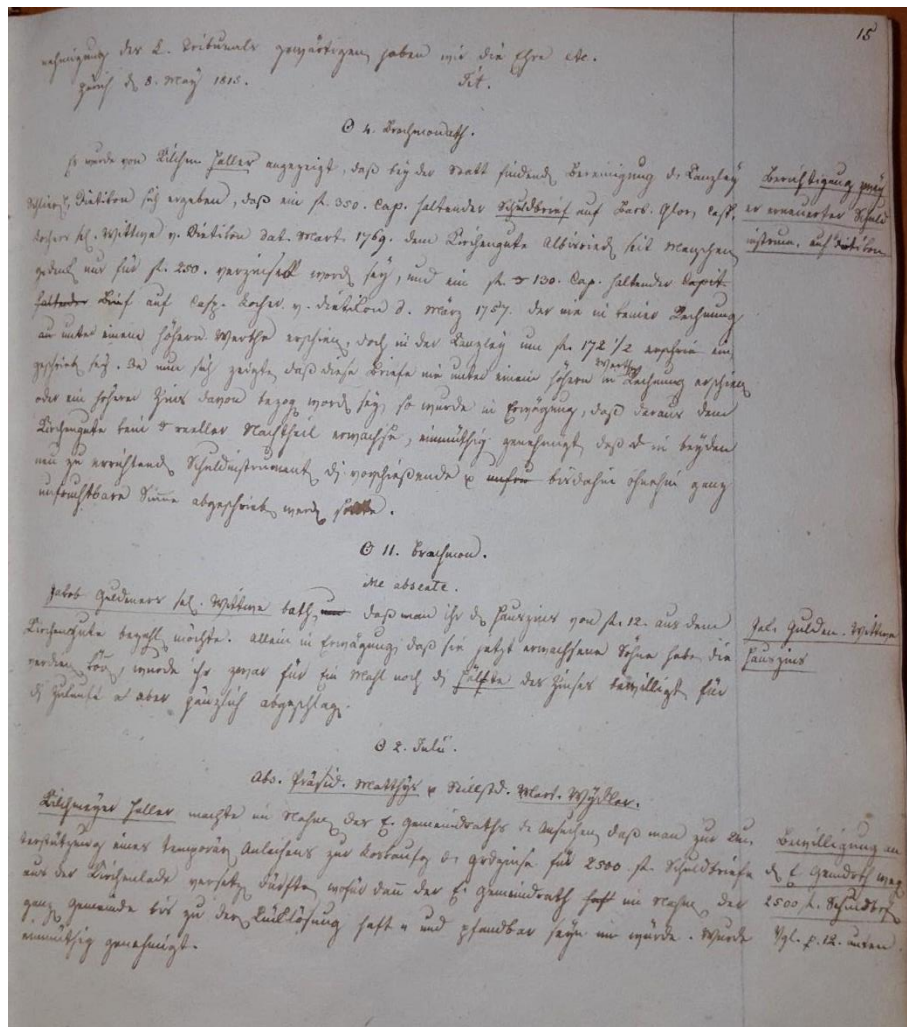 15
nehmigung des L. Tribunals gewärtigen, haben wir die Ehre etc.
Zürich d. 8. May 1815. Tit.
☉ 4. Brachmonath.
Es wurde von Kilchm. Haller angezeigt, daß bey der Statt findend. Bereinigung d. Kanzley
Schlier., Dietikon sich ergeben, daß ein fl. 350. Cap. haltender Schuldbrief auf Barb. Glor, Casp.
Kochers sel. Wittwe v. Dietikon dat. Mart. 1769. dem Kirchengute Albisried, seit Menschen
gedenk. nur für fl. 250. verzinset word. sey, und ein fl. 130. Cap. haltender Capit.
haltender Brief auf Casp. Kocher v. Dietikon d. März 1757. der nie in keiner Rechnung
an unter einem höhern Werthe erschien, doch in der Kanzley um fl. 172 1/2 erschein ein
geschrieb. sey. Da nun sich zeigte, daß diese Briefe nie unter einem höhern Werth in Rechnung erschien
oder ein höherer Zins davon bezog. word. sey, so wurde in Erwägung, daß daraus dem
Kirchengute kein reeller Nachtheil erwachse, einmüthig genehmigt, daß in beyden
neu zu errichtend. Schuldinstrument. di vorschießende bisdahin ohnehin ganz
unfruchtbare Summe abgeschrieb. werd. sollte.
Berichtigung zwey
er erneuerter Schuld
instrum. auf Dietikon
☉ 11. Brachmon.
me absente.
Jakob Guldeners sel. Wittwe bath, daß man ihr d. Hauszins von fl. 12. aus dem
Kirchengute bezahl. möchte. Allein in Erwägung, daß sie jetzt erwachsene Söhne habe, die
verdien. kön., wurde ihr zwar für Ein Mahl noch di Hälfte des Zinses bewilligt, für
di Zukunft aber gänzlich abgeschlag.
Gulden. Wittwe
Hauszins
☉ 2. Julii.
Abs. Präsid. Matthys u Stillstd. Mart. Wydler.
Kilchmeyer Haller machte im Nahmen des E. Gemeindraths d. Ansuchen, daß man zur Un-
terstützung eines temporär. Anleihens zur Loskaufg. d. Grdzinse für 2500 fl. Schuldbriefe
aus der Kirchenlade versetz. dürfte, wofür dann der E. Gemeindrath haft im Nahmen der
ganz. Gemeinde bis zu der Rücklösung haft- und pfandbar seyn würde. Wurde
einmüthig genehmigt.
Bewilligung an
d. E. Gemdrath weg.
2500 fl. Schuldbrf.
Vgl. p. 12. unten.